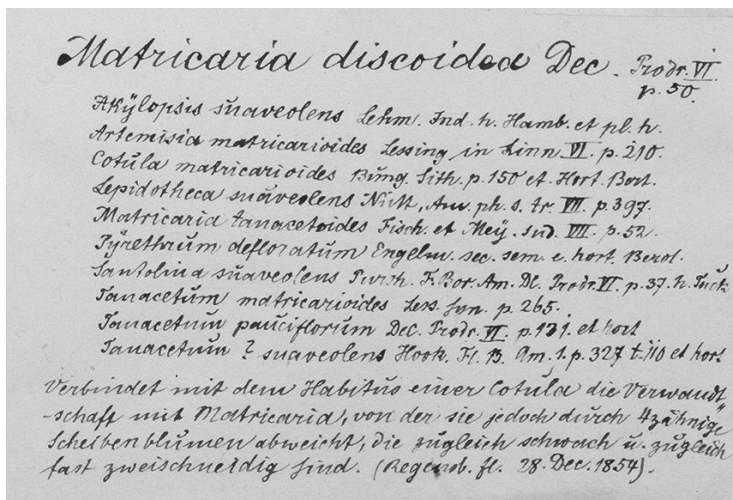 Matricaria discoidea Dec. Prodr. VI
p. 50.
Akÿlopsis suaveolens Lehm. Ind. h. Hamb. et pl. h.
Artemisia matricarioides Lessing in Linn VI. p. 210.
Cotula matricarioides Bung. Sith. p. 150 et. Hort. Bert.
Lepidotheca suaveolens Nutt, Am. ph. s. tr. VII. p 397.
Matricaria tanacetoides Fisch. et Meÿ. Ind. VIII. p. 52.
Pÿrethrum defloratum Engelm. sec. sem. e. hort. Berol.
Santolina suaveolens Pursh. F. Bor. Am. Dl. Prodr. VI. p. 37. h.
Tanacetum matricarioides Less. Syn. p. 265.
Tanacetum pauciflorum Dec. Prodr. VI. p. 131. et hort
Tanacetum ? suaveolens Hook. Fl. B. Am. 1. p. 327 t. 110 et hort
Verbindet mit dem Habitus einer Cotula die Verwandt
-schaft mit Matricaria, von der sie jedoch durch 4zähnige
Scheibenblumen abweicht, die zugleich schwach u. zugleich
fast zweischneidig sind. (Regensb. fl. 28. Dec. 1854).